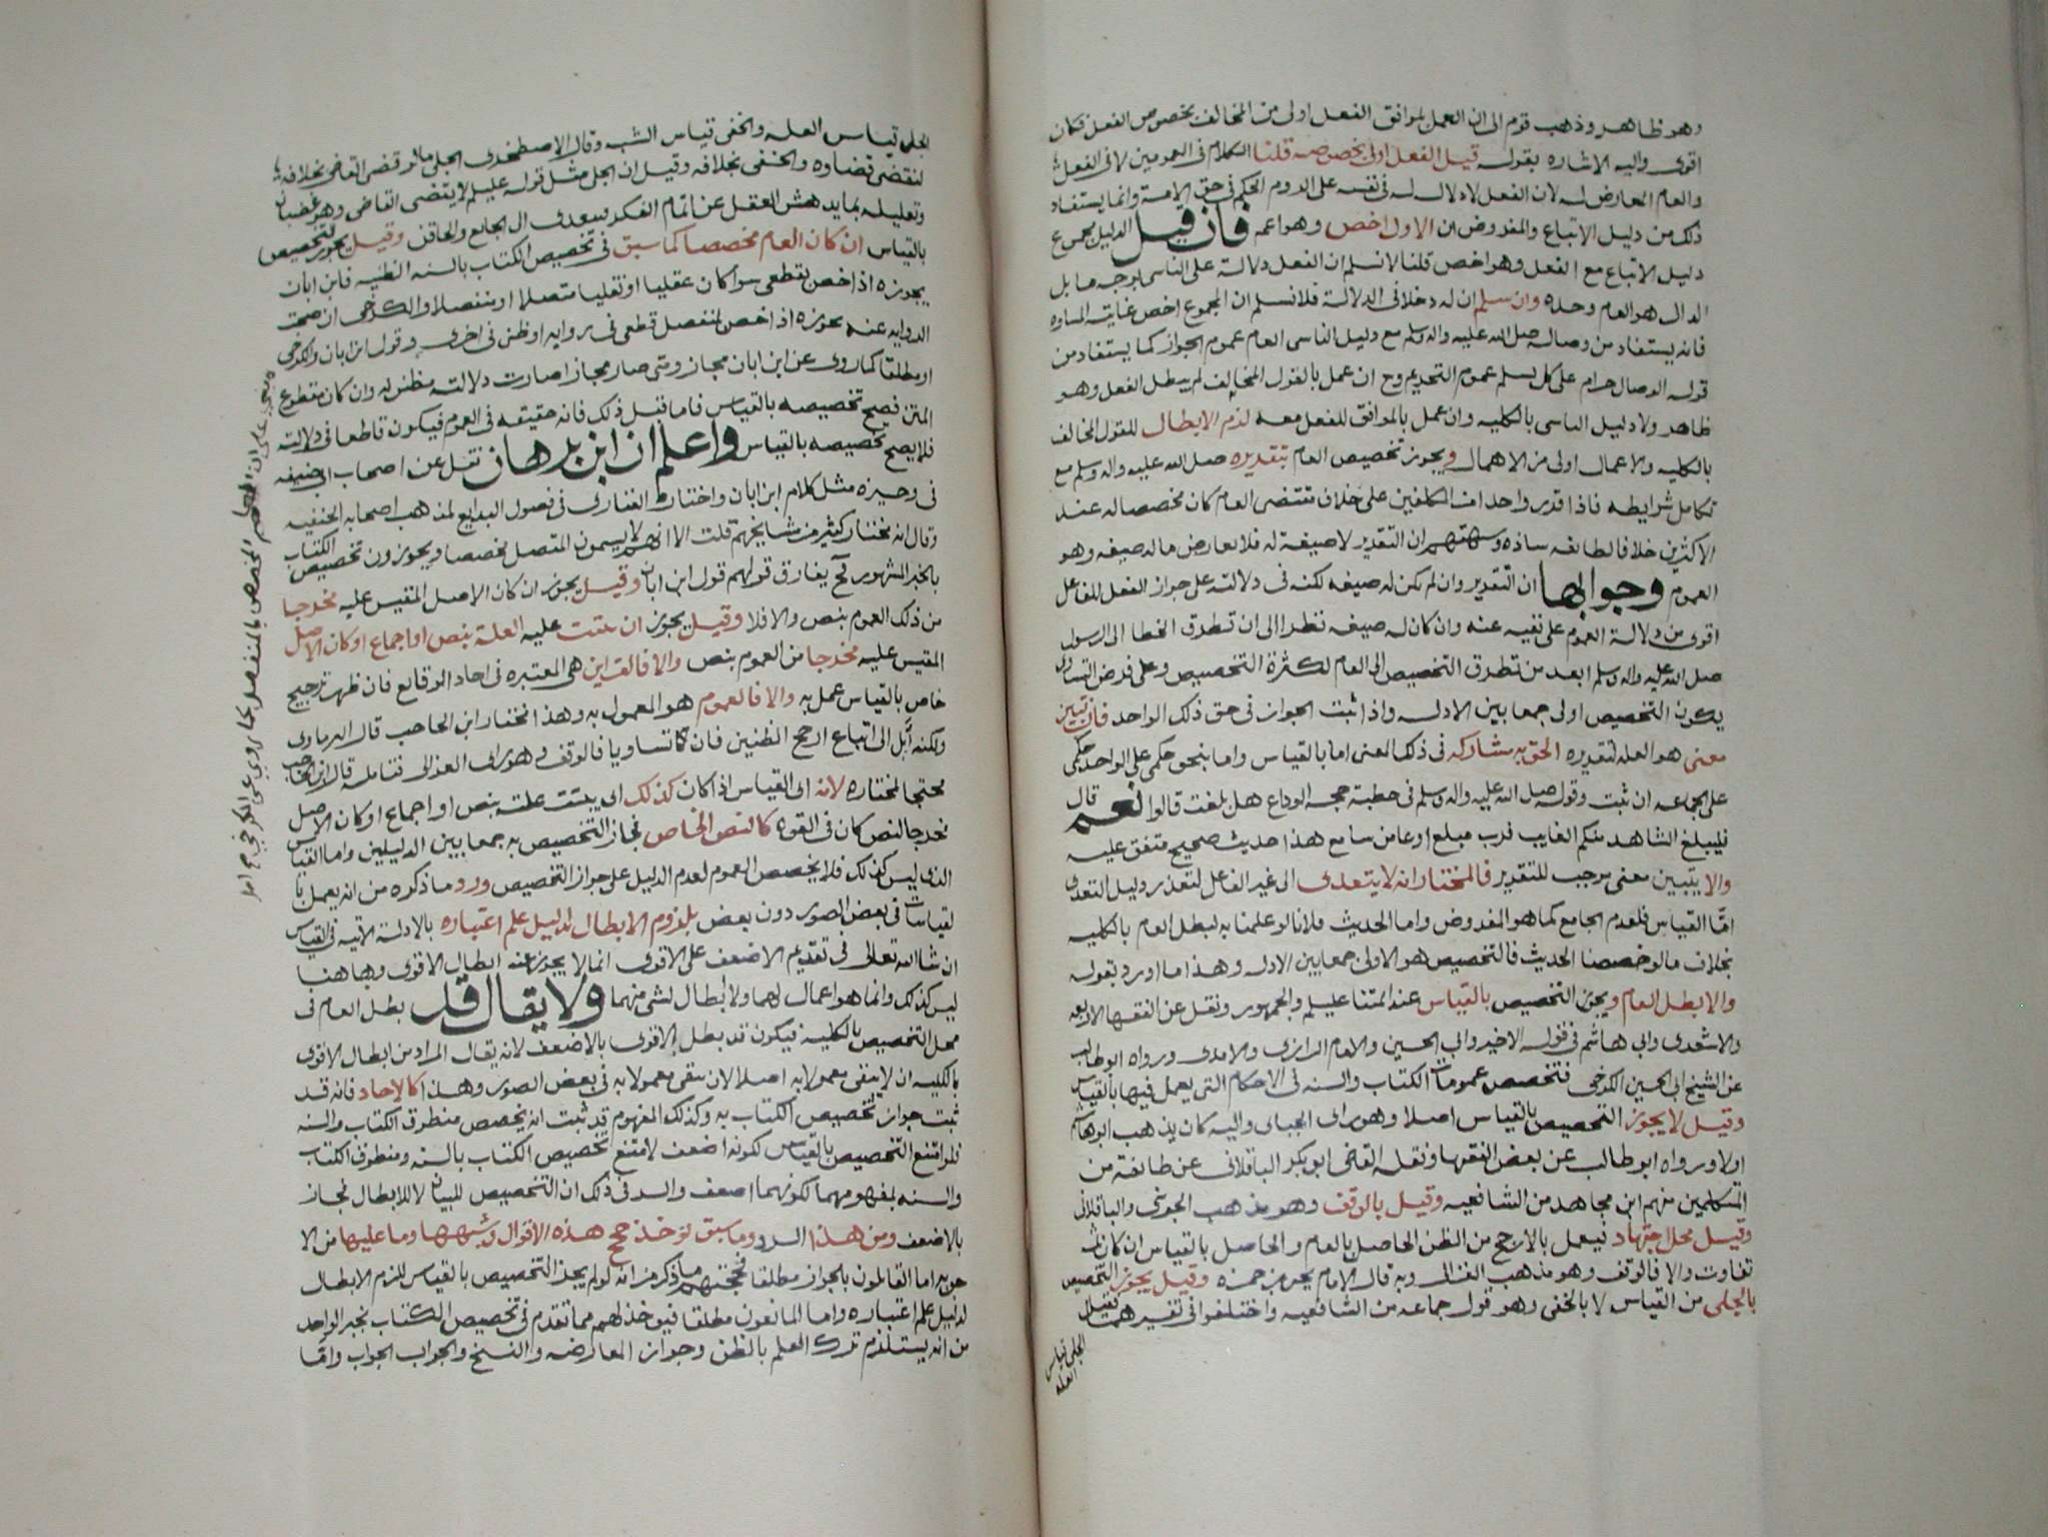 وهو ظاهر وذهب قوم الى ان العمل بموافق الفعل اولى من المخالف بخصوص الفعل فكان
اقوى واليه الاشاره بقوله قيل الفعل اولى بخصوصه قلنا الكلام في العمومين لا في الفعل
والعام المعارض له لان الفعل لا دلاله له في نفسه على لزوم الحكم في حق الامة وانما يستفاد
ذلك من دليل الاتباع والمفروض ان الاول اخص وهو اعم فان قيل الدليل مجموع
دليل الاتباع مع الفعل وهو اخص قلنا لا نسلم ان الفعل دلالة على التاسي بوجه ما بل
الدال هو العام وحده وان سلم ان له دخلا في الدلالة فلا نسلم ان المجموع اخص غايته المساوه
فانه يستفاد من وصاله صلى الله عليه واله وسلم مع دليل التاسي العام عموم الجواز كما يستفاد من
قوله الوصال حرام على كل مسلم عموم التحريم وح ان عمل بالقول المخالف لم يبطل الفعل وهو
ظاهر ولا دليل التاسي بالكليه وان عمل بالموافق للفعل معه لزم الابطال للقول المخالف
بالكليه والاعمال اولى من الاهمال ويجوز تخصيص العام بتقديره صلى الله عليه واله وسلم مع
تكامل شرايطه فاذا قدر واحدا من المكلفين على خلاف مقتضى العام كان مخصصا له عند
الاكثرين خلافا لطائفه شاذه وشبهتهم ان التقدير لا صيغة له فلا يعارض ما له صيغه وهو
العموم وجوابها ان التقدير وان لم يكن له صيغه لكنه في دلالته على جواز الفعل للفاعل
اقوى من دلالة العموم على نفيه عنه وان كان له صيغه نظرا الى ان تطرق الخطا الى الرسول
صلى الله عليه واله وسلم ابعد من تطرق التخصيص الى العام لكثرة التخصيص وعلى فرض التساوي
يكون التخصيص اولى جمعا بين الادله واذا ثبت الجواز في حق ذلك الواحد فان تبين
معنى هو العله لتقديره الحق به مشاركه في ذلك المعنى اما بالقياس واما بنحو حكمي على الواحد حكمي
على الجماعه ان ثبت وقوله صلى الله عليه واله وسلم في خطبة حجة الوداع هل بلغت قالوا نعم قال
فليبلغ الشاهد منكم الغايب فرب مبلغ اوعى من سامع هذا حديث صحيح متفق عليه
والا يتبين معنى موجب للتقدير فالمختار انه لا يتعدى الى غير الفاعل لتعذر دليل التعدي
امّا القياس فلعدم الجامع كما هو المفروض واما الحديث فلانا لو عملنا به لبطل العام بالكليه
بخلاف ما لو خصصنا الحديث فالتخصيص هو الاولى جمعا بين الادله وهذا ما اورد بقوله
والا بطل العام ويجوز التخصيص بالقياس عند ائمتنا عليلم والجمهور ونقل عن الفقها الاربعه
والاشعري وابي هاشم في قوله الاخير وابي الحسين والامام الرازي والامدي ورواه ابو طالب
عن الشيخ ابي الحسن الكرخي فتخصص عمومات الكتاب والسنه في الاحكام التي يعمل فيها بالقياس
وقيل لا يجوز التخصيص بالقياس اصلا وهو راى الجباى واليه كان يذهب ابو هاشم
اولا ورواه ابو طالب عن بعض الفقها ونقله القاضي ابو بكر الباقلاني عن طائفة من
المتكلمين منهم ابن مجاهد من الشافعيه وقيل بالوقف وهو مذهب الجويني والباقلاني
وقيل محل اجتهاد فيعمل بالارجح من الظن الحاصل بالعام والحاصل بالقياس ان كان ثمّ
تفاوت والا فالوقف وهو مذهب الغزالي وبه قال الامام يحيى بن حمزه وقيل يجوز التخصيص
بالجلي من القياس لا بالخفي وهو قول جماعه من الشافعيه واختلفوا في تفسيرهما فقيل
الجلي قياس
العله
الجلي قياس العله والخفي قياس الشبه وقال الاصطخري الجلي ما لو قضى القاضي بخلافه
لنقض قضاوه والخفي بخلافه وقيل ان الجلي مثل قوله عليلم لا يقضى القاضي وهو غضبان
وتعليله بما يدهش العقل عن اتمام الفكر فيتعدى الى الجايع والحاقن وقيل يجوز التخصيص
بالقياس ان كان العام مخصصا كما سبق في تخصيص الكتاب بالسنه الظنيه فابن ابان
يجوزه اذا خص بقطعي سوا كان عقليا او نقليا متصلا او منفصلا والكرخي ان صحت
الروايه عنه يجوزه اذا خص بمنفصل قطعي في روايه او ظني في اخرى وقول ابن ابان والكرخي
او مطلقا كما روي عن ابن ابان مجاز ومتى صار مجازا صارت دلالته مظنونه وان كان مقطوع
المتن فصح تخصيصه بالقياس فاما قبل ذلك فانه حقيقه في العموم فيكون قاطعا في دلالته
فلا يصح تخصيصه بالقياس واعلم ان ابن برهان نقل عن اصحاب ابي حنيفه
في وجيزه مثل كلام ابن ابان واختاره الفناري في فصول البدايع لمذهب اصحابه الحنفيه
وقال انه مختار كثير من مشايخهم قلت الا انهم لا يسمون المتصل مخصصا ويجوزون تخصيص الكتاب
بالخبر المشهور فح يفارق قولهم قول ابن ابان وقيل يجوز ان كان الاصل المقيس عليه مخرجا
من ذلك العموم بنص والا فلا وقيل يجوز ان ثبتت عليه العلة بنص او اجماع او كان الاصل
المقيس عليه مخرجا من العموم بنص والا فالقراين هي المعتبره في احاد الوقائع فان ظهر ترجيح
خاص بالقياس عمل به والا فالعموم هو المعمول به وهذا مختار ابن الحاجب قال البرماوي
ولكنه آيل الى اتباع ارجح الظنين فان تساويا فالوقف وهو راى الغزالي فتامله قال ابن الحاجب
محتجا لمختاره لانه اى القياس اذا كان كذلك اى ثبتت علته بنص او اجماع او كان الاصل
مخرجا بالنص كان في القوه كالنص الخاص فجاز التخصيص به جمعا بين الدليلين واما القياس
الذي ليس كذلك فلا يخصص العموم لعدم الدليل على جواز التخصيص ورد وما ذكره من انه يعمل با
لقياسات في بعض الصور دون بعض بلزوم الابطال لدليل علم اعتباره بالادلة الاتيه في القياس
ان شا الله تعالى في تقديم الاضعف على الاقوى انما لا يجوز عند ابطال الاقوى وها هنا
ليس كذلك وانما هو اعمال لهما ولا ابطال لشي منهما ولا يقال قد بطل العام في
محل التخصيص بالكليه فيكون قد بطل الاقوى بالاضعف لانه يقال المراد من ابطال الاقوى
بالكليه ان لا يبقى معمولا به اصلا لان يبقى معمولا به في بعض الصور وهذا كالاحاد فانه قد
ثبت جواز تخصيص الكتاب به وكذلك المفهوم قد ثبت انه يخصص منطوق الكتاب والسنه
فلو امتنع التخصيص بالقياس لكونه اضعف لامتنع تخصيص الكتاب بالسنه ومنطوق الكتاب
والسنه بمفهومهما لكونهما اضعف والسر في ذلك ان التخصيص للبيان لا للابطال فجاز
بالاضعف ومن هذا الرد وما سبق تؤخذ حجج هذه الاقوال وشبهها وما عليها من الا
جوبه اما القائلون بالجواز مطلقا فحجتهم ما ذكر من انه لو لم يجز التخصيص بالقياس للزم الابطال
لدليل علم اعتباره واما المانعون مطلقا فيوخذ لهم مما تقدم في تخصيص الكتاب بخبر الواحد
من انه يستلزم ترك العلم بالظن وجواز المعارضه والنسخ والجواب الجواب وامّا
المخصص بالمنفصل كما روي عن الكرخي